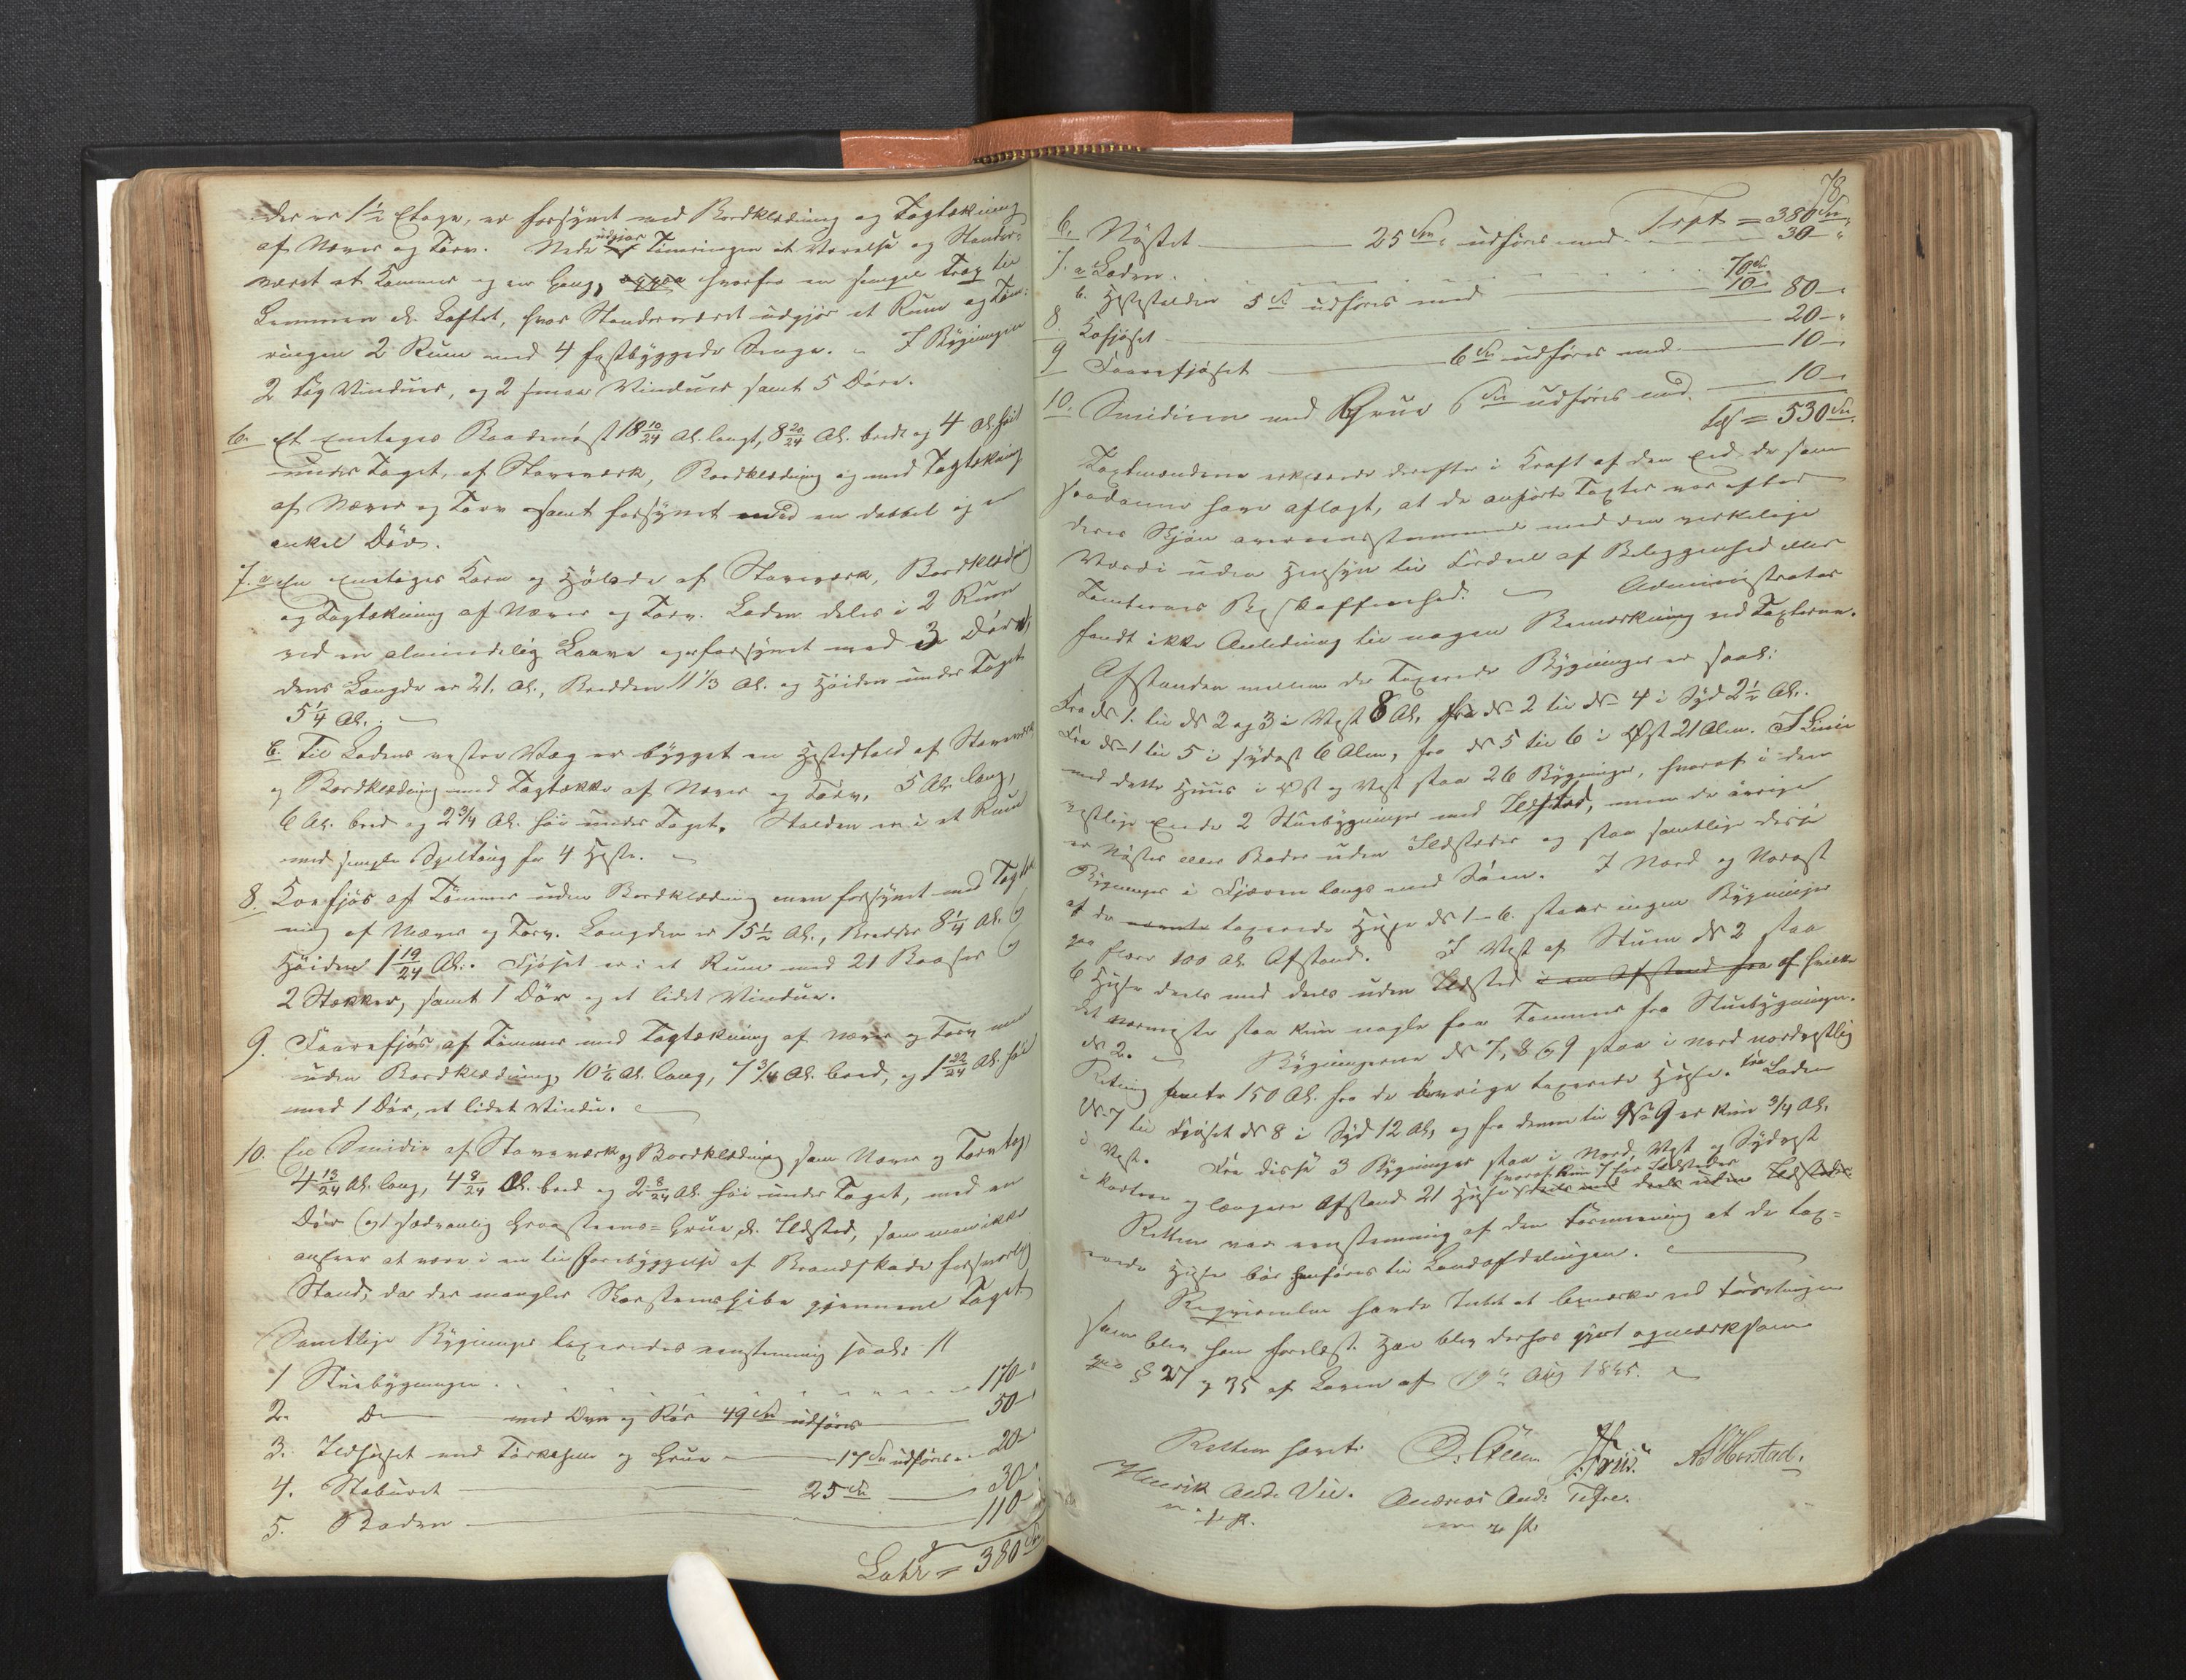 der er 1½ Etage, er forsynet med Bordklædning og Tagtækning
af Næver og Torv. Nede udgjør Tømringen et Værelse og Stænder-
været et Kammer og en Gang, hvorfra en simpel Trap til
Lemmen el. Loftet, hvor Stænderværket udgjør et Rum og Tøm-
ringen 2 Rum med 4 fastbyggede Senge. I Bygningen
2 Fag Vinduer, og 2 smaa Vinduer samt 5 Døre.
6. Et Eenetages Baadenøst 18 10/24 Al. langt, 8 20/24 Al. bredt og 4 Al. høit
under Taget, af Stavværk, Bordklædning og med Tagtækning
af Næver og Torv samt forsynet med en dobbel og en
enkel Dør.
7. a En Eenetages Korn og Hølade af Stavværk, Bordklædning
og Tagtækning af Næver og Torv. Laden deles i 2 Rum
ved en almindelig Laave og er forsynet med 3 Døre,
dens Længde er 21. Al., Bredden 11 1/3 Al. og Høiden under Taget
5¼ Al.
b. Til Ladens vestre Væg er bygget en Hestestald af Stavværk
og Bordklædning med Tagtække af Næver og Torv, 5 Al. lang,
6 Al. bred og 2¾ Al. høi under Taget. Stalden er i et Rum
med simple Spiltoug for 4 Heste.
8. Kofjøs af Tømmer uden Bordklædning men forsynet med Tagtæk-
ning af Næver og Torv. Længden er 15½ Al., Bredden 8¼ Al. og
Høiden 1 19/24 Al. Fjøset er i et Rum med 21 Baaser og
2 Stækker, samt 1 Dør og et lidet Vindue.
9. Faarefjøs af Tømmer med Tagtækning af Næver og Torv men
uden Bordklædning, 10½ Al. lang, 7¾ Al. bred, og 1 22/24 Al. høi
med 1 Dør, et lidet Vindu.
10. En Smidie af Stavværk og Bordklædning samt Næver og Torvtag,
4 13/24 Al. lang, 4 8/24 Al. bred og 2 8/24 Al. høi under Taget, med en
Dør og sædvanlig Graasteens-Grue el. Ildsted, som man ikke
anseer at være i en til Forebyggelse af Brandskade forsvarlig
Stand, da der mangler Skorsteenspibe gjennem Taget
Samtlige Bygninger taxeredes eenstemmig saal: //
1 Stuebygningen 170
2. Do med Ovn og Rør 49 Sp. udføres 50
3. Ildhuset med Tørkehelle og Grue 17 Sp. udføres 20
4. Stabburet 25 Sp. 30
5. Boden 110
Latr = 380 Sp.
78
Trpt = 380 Sp.
6. Nøstet 25 Sp. udføres med 30
7. a Laden. 70 Sp.
b. Hestestalden 5 Sp. udføres med 10 80
8 Kofjøset 20
9 Faarefjøset 6 Sp. udføres med 10
10. Smidien med Grue 6 Sp. udføres med 10
= 530 Sp.
Taxtmændene erklærede derefter i Kraft af den Eed, de som
saadanne have aflagt, at de anførte Taxter var efter
deres Skjøn overeensstemmende med den virkelige
Værdi uden Hensyn til Fordeel af Beliggenhed eller
Tomternes Beskaffenhed. Administrator
fandt ikke Anledning til nogen Bemærkning ved Taxterne.
Afstanden mellem de Taxerede Bygninger er saal:
Fra No 1. til No 2 og 3 i Vest 8 Al, fra No 2 til No 4 i Syd 2½ Al.
Fra No 1 til 5 i sydost 6 Alen, fra No 5 til 6 i Øst 21 Alen. I Linie
med dette Huus i Øst og Vest staa 26 Bygninger, hvoraf i den
vestlige Ende 2 Stuebygninger med Ildsted, men de øvrige
er Nøster eller Boder uden Ildsteder og staa samtlige disse
Bygninger i Fjæren langs med Søen. I Nord og Norost
af de taxerede Huse No 1-6. staar ingen Bygninger
paa fleer 100 Al. Afstand. I Vest af Stuen No 2 staa
6 Huse deels med deels uden Ildsted i en Afstand fra af hvilke
det nærmeste staa kun nogle faa Tommer fra Stuebygningen
No 2. Bygningerne No 7, 8 og 9 staa i nord nordvestlig
Retning 150 Al. fra de øvrige taxerede Huse. Fra Laden
No 7 til Fjøset No 8 i Syd 12 Al, og fra denne til No 9 er kun ¾ Al.
i Vest. Fra disse 3 Bygninger staa i Nord, Vest og Sydvest
i kortere og længere Afstand 21 Huse hvoraf kun 7 har Ildsteder deels med deels uden Ildsteder
Retten var eenstemmig af den Formening at de tax-
erede Huse bør henføres til Landafdelingen.
Reqvirenten havde Intet at bemærke ved Forretningen
som blev ham forelæst. Han blev derhos gjort opmærksom
paa § 27 og 35 af Loven af 19de Aug 1845.
Retten hævet. O: Steen A Horstad.
Henrik And: Vie. Andreas And: Tefre.
m. f. P. m. f. P.